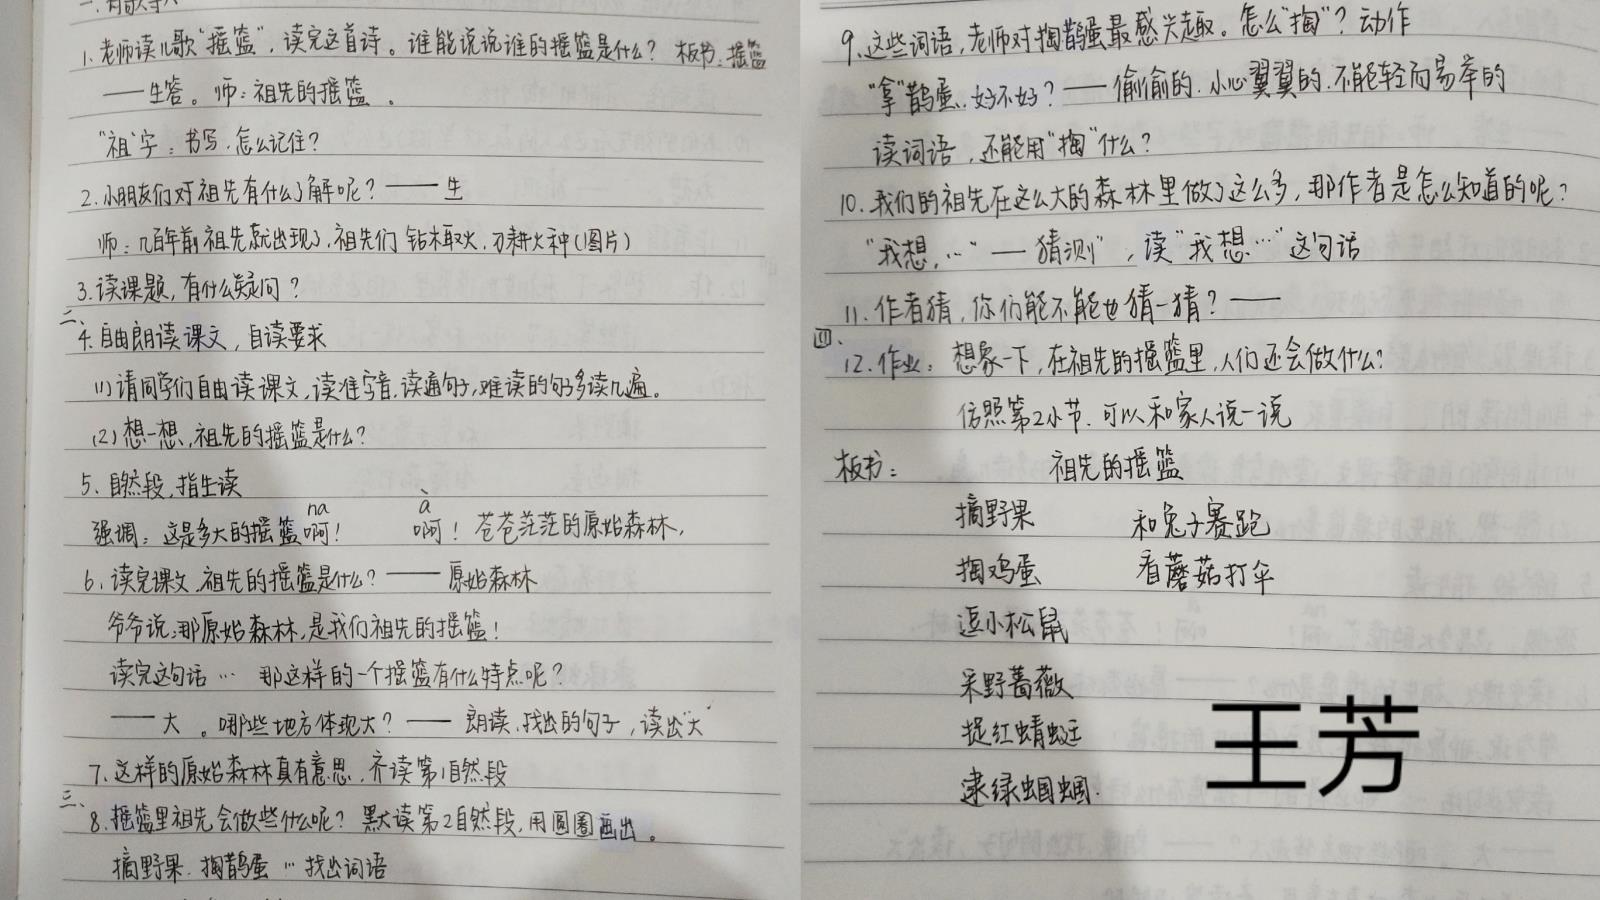 1.老师读儿歌"摇篮",读完这首诗。谁能说说谁的摇篮是什么? 板书:摇篮
——生答。师:祖先的摇篮。
"祖"字:书写.怎么记住?
2.小朋友们对祖先有什么了解呢?——生
师:几百年前祖先就出现了,祖先们 钻木取火,刀耕火种(图片)
3.读课题,有什么疑问?
二、
4.自由朗读课文,自读要求
(1)请同学们自由读课文,读准字音,读通句子,难读的句子多读几遍。
(2)想一想,祖先的摇篮是什么?
5、自然段,指生读
na à
强调:这是多大的摇篮啊! 啊!苍苍茫茫的原始森林,
6、读完课文.祖先的摇篮是什么?——原始森林
爷爷说:那原始森林,是我们祖先的摇篮!
读完这句话… 那这样的一个摇篮有什么特点呢?
——大 。哪些地方体现大?——朗读.找出的句子,读出"大"
7.这样的原始森林真有意思,齐读第1自然段
三、
8.摇篮里祖先会做些什么呢?默读第2自然段,用圆圈画出。
摘野果.掏鹊蛋…找出词语
9.这些词语,老师对掏鹊蛋最感兴趣。怎么"掏"?动作
"拿"鹊蛋..好不好?——偷偷的.小心翼翼的.不能轻而易举的
读词语,还能用"掏"什么?
10.我们的祖先在这么大的森林里做了这么多,那作者是怎么知道的呢?
"我想,…"—猜测",读"我想…"这句话
11.作者猜,你们能不能也猜一猜?——
四、
12.作业:想象一下,在祖先的摇篮里,人们还会做什么?
仿照第2小节.可以和家人说一说
板书: 祖先的摇篮
摘野果 和兔子赛跑
掏鸡蛋 看蘑菇打伞
逗小松鼠
采野蔷薇
捉红蜻蜓
逮绿蝈蝈.
王芳